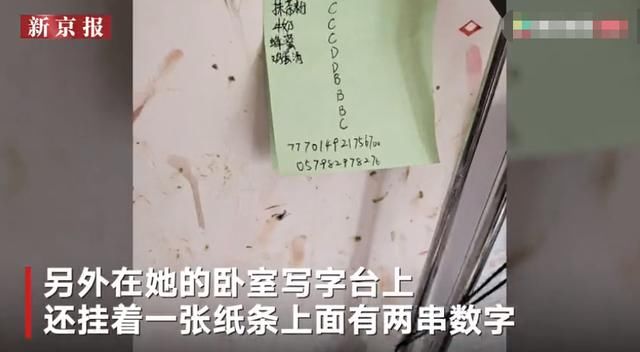 新京报
抹茶粉 C
牛奶 C
蜂蜜 C
鸡蛋清 D
D
B
B
B
C
05798297827
另外在她的卧室写字台上
还挂着一张纸条上面有两串数字